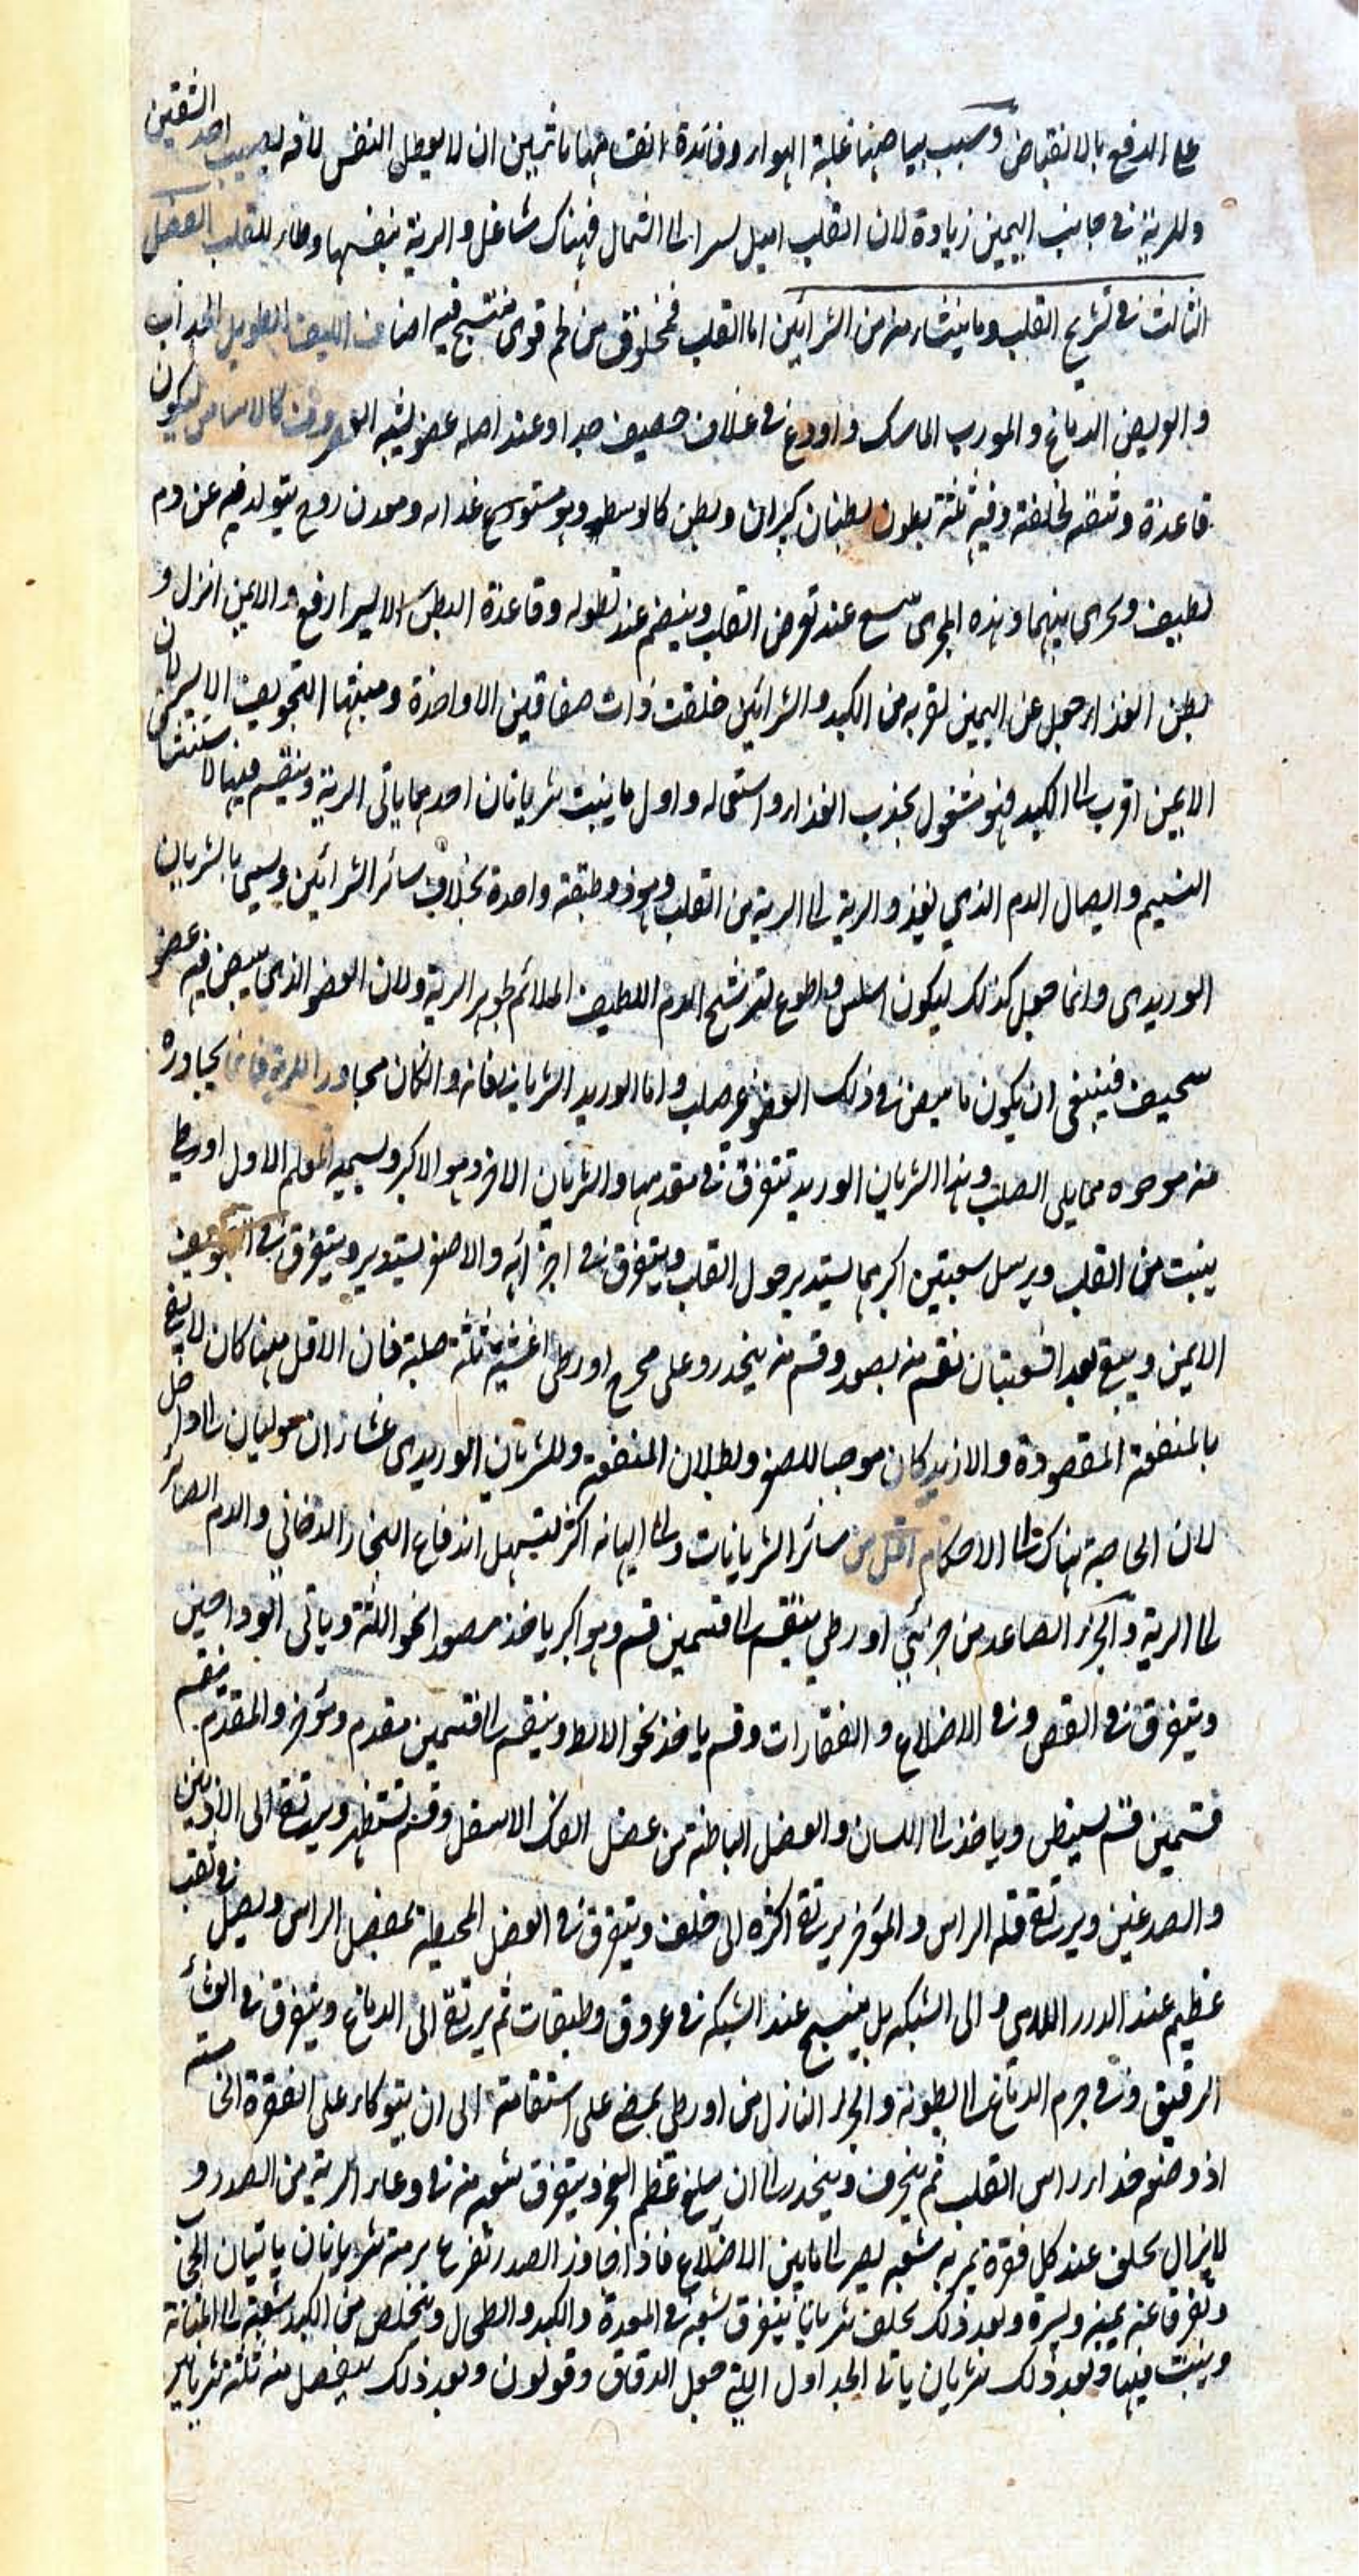 على الدفع بالانقباض وسبب بياضها غلبة الهواء وفائدة انقسامها باثنين ان لا يعطل النفس لافة لصيب احد الشقين
وللرية في جانب اليمين زيادة لان القلب اميل يسرا الى الشمال فهناك شاغل والرية بنفسها وطاء للقلب الفصل
الثالث في تشريح القلب وما ينشاء منه من الشرائين اما القلب فمخلوق من لحم قوى منتسج فيه اصناف الليف الطويل الجذاب
والعريض الدفاع والمورب الماسك واودع في غلاف حصيف جدا وعند اصله عضو يشبه الغضروف كالاساس ليكون
قاعدة وثيقة لخلقته وفيه ثلثة بطون بطنان كبيران وبطن كالوسط وهو مستودع غذاء ومعدن روح يتولد فيه عن دم
لطيف ومجرى بينهما وهذه المجرى يتسع عند تعرض القلب وينضم عند تطوله وقاعدة البطن الايسر ارفع والايمن انزل و
بطن الغذاء جعل عن اليمين لقربه من الكبد والشرائين خلقت ذات صفاقين الا واحدة ومنبتها التجويف الايسر لان
الايمن اقرب الى الكبد فهو مشغول بجذب الغذاء واستعماله واول ما ينبت شريانان احدهما ياتى الرية وينقسم فيها لاستنشاق
النسيم وايصال الدم الذي يغذو الرية الى الرية من القلب وهو ذو طبقة واحدة بخلاف سائر الشرائين ويسمى بالشريان
الوريدى وانما جعل كذلك ليكون اسلس واطوع لترشح الدم اللطيف الملائم لجوهر الرية ولان العضو الذى ينبض فيه عضو
سخيف فينبغى ان يكون ما ينبض في ذلك العضو غير صلب واما الوريد الشريانى فانه والكان مجاور للرية فانما يجاوره
منه موخره مما يلى الصلب وهذا الشريان الوريد تتفرق في مقدمها والشريان الاخر وهو الاكبر ويسميه المعلم الاول اورطى
ينبت من القلب ويرسل شعبتين اكبرهما يستدير حول القلب ويتفرق في اجزائه والاصغر يستدير ويتفرق في التجويف
الايمن ويبقى بعد الشعبتان نقسم منه يصعد وقسم منه ينحدر وعلى مخرج اورطى اغشية ثلثة صلبة فان الاقل منها كان لا يفى
بالمنفعة المقصودة والازيد كان موجبا للصغر ولبطلان المنفعة وللشريان الوريدى غشاءان موليان الى داخل
لان الحاجة هناك الى الاحكام اقل من سائر الشريانات والى السلانة اكثر لتسهل اندفاع البخار الدخاني والدم الصائر
الى الرية والجزء الصاعد من جزئي اورطى ينقسم الى قسمين قسم وهو اكبر ياخذ مصعدا نحو اللثة وياتى الوداجين
ويتفرق في القص وفي الاضلاع والفقارات وقسم ياخذ نحو الابط وينقسم الى قسمين مقدم ومؤخر والمقدم ينقسم
قسمين قسم يستبطن وياخذ الى اللسان والعضل الباطنة من عضل الفك الاسفل وقسم تستظهر ويرتقى الى الاذنين
والصدغين ويرتقى قلة الراس والمؤخر يرتقى اكثره الى خلف ويتفرق في العضل المحيطة بمفصل الراس ويصل في ثقب
عظيم عند الدرر اللامى الى الشبكة بل ينتسج عند الشبكة في عروق وطبقات ثم يرتقى الى الدماغ ويتفرق في الغشاء
الرقيق وفي جرم الدماغ الى بطونه والجزء النازل من اورطى يمضى على استقامة الى ان يتوكاء على الفقرة الخامسة
اذ وضعه حذاء راس القلب ثم ينحرف وينحدر الى ان يبلغ عظم العجز ويتفرق شعبه منه في وعاء الرية من الصدر و
لا يزال يخلف عند كل فقرة يمر به شعبه يصير الى ما بين الاضلاع فاذا جاوز الصدر تفرع برمته شريانان ياتيان الحجاب
وتفرقا عنه يمينة ويسرة وبعد ذلك يخلف شريانا يتفرق شعبه في المعدة والكبد والطحال وتتخلص من الكبد شعبة الى المثانة
وينبت فيها وبعد ذلك شريان ياتى الجداول التي حول الدقاق وقولون وبعد ذلك ينفصل منه ثلثة شرايين